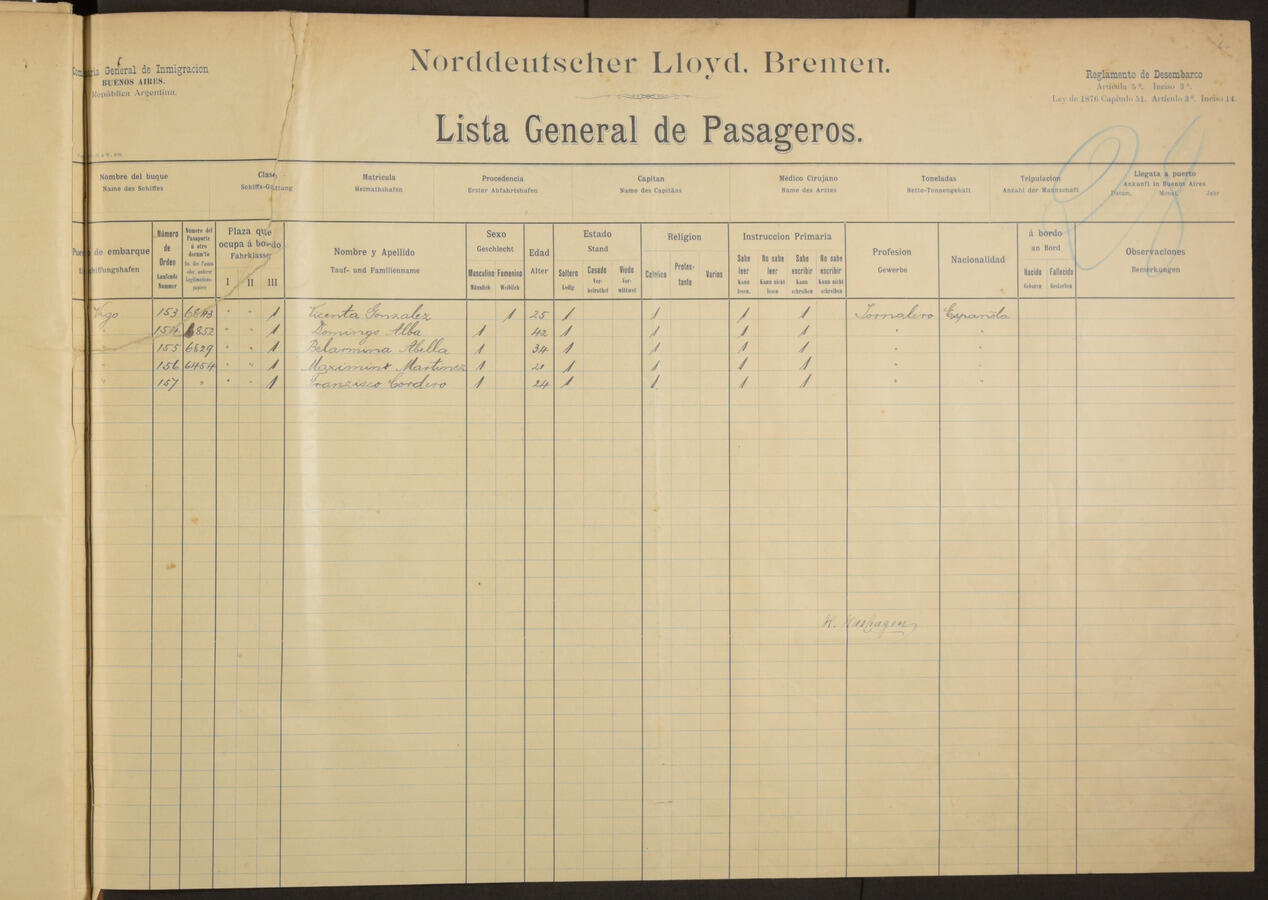 Norddeutscher Lloyd, Bremen.
Lista General de Pasageros.
General de Inmigracion
BUENOS AIRES.
República Argentina.
Reglamento de Desembarco
Articula 5º. Inciso 3º.
Ley de 1876 Capitulo 51. Articulo 3º. Inciso 14.
Nombre del buque Clase Matricula Procedencia Capitan Médico Cirujano Toneladas Tripulacion Llegata a puerto
Name des Schiffes Schiffs-Gattung Heimathshafen Erster Abfahrtshafen Name des Capitäns Name des Arztes Netto-Tonnengehalt Anzahl der Mannschaft Ankunft in Buenos Aires
Datum, Monat, Jahr
de embarque Número de Orden Número del Pasaporte á otro Plaza que ocupa á bordo Nombre y Apellido Sexo Edad Estado Religion Instruccion Primaria Profesion Nacionalidad á bordo Observaciones
Laufende Nummer Fahrklasse Tauf- und Familienname Geschlecht Alter Stand Gewerbe an Bord Bemerkungen
I II III Masculino Femenino Soltero Casado Viudo Catolico Protes-tante Varios Sabe leer No sabe leer Sabe escribir No sabe escribir Nacido Fallecido
Männlich Weiblich Ledig Ver-heirathet Ver-wittwet Kann lesen. Kann nicht lesen Kann schreiben Kann nicht schreiben Geboren Gestorben
Vigo 153 6843 " " 1 Vicenta Gonzalez 1 25 1 1 1 1 Jornalero Española
" 154 6852 " " 1 Domingo Alba 1 42 1 1 1 1 " "
" 155 6829 " " 1 Belarmina Abella 1 34 1 1 1 1 " "
" 156 6454 " " 1 Maximino Martinez 1 21 1 1 1 1 " "
" 157 " " " 1 Francisco Cordero 1 24 1 1 1 1 " "